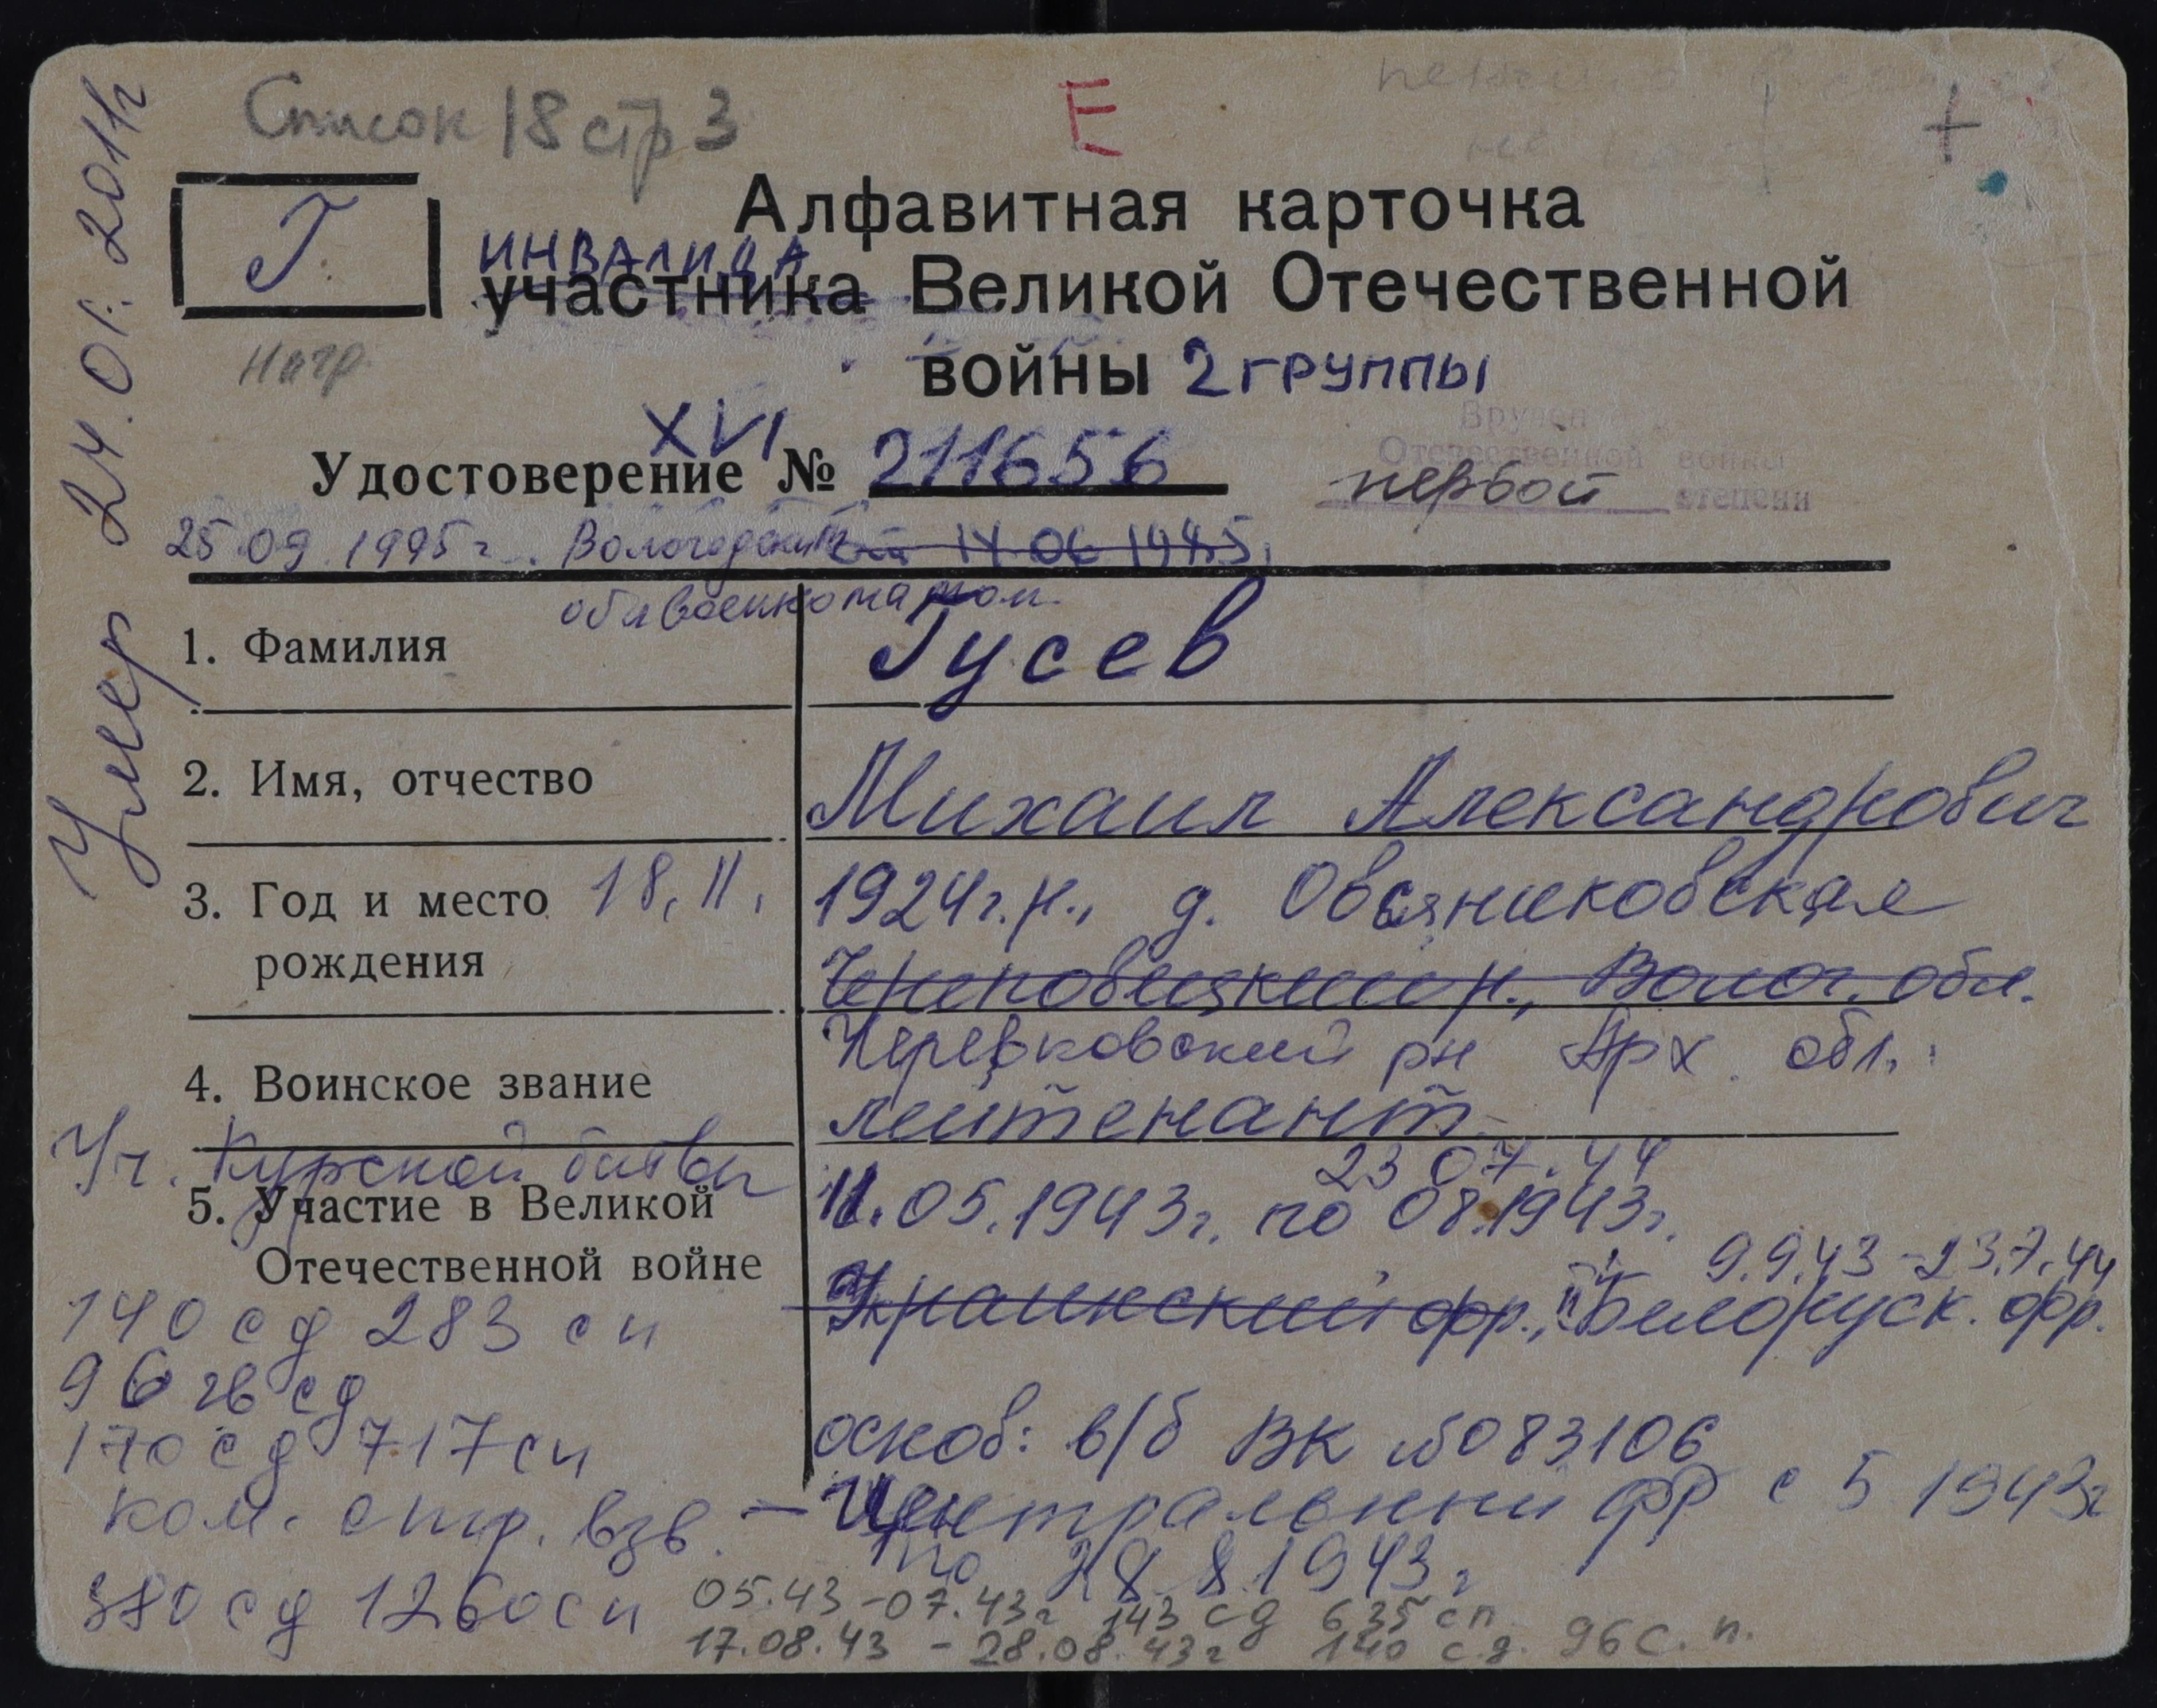 Список 18 стр 3
Е
+
Г.
Алфавитная карточка
ИНВАЛИДА
участника Великой Отечественной
войны 2 ГРУППЫ
Нагр.
XVI
Удостоверение № 211656
Вручен
Отечественной войны
первой степени
25.09.1995 г. Вологодским от 14.06.1945
облвоенкоматом
Умер 24.01.2011г
1. Фамилия Гусев
2. Имя, отчество Михаил Александрович
3. Год и место 18.II. 1924г.р., д. Овсянниковская
рождения Череповецкий р., Волог. обл.
Черевковский рн Арх. обл.
4. Воинское звание лейтенант
Уч. Курской битвы
23 07.44
5. Участие в Великой 11.05.1943г. по 08.1943г.
Отечественной войне
9.9.43 - 23.7.44
Украинский фр., Белоруск. фр.
140 сд 283 сп
96 гв сд
170 сд 717 сп
основ: в/б ВК №083106
ком. стр. взв. — Центральный фр с 5 1943г
по 28 8 1943г
380 сд 1260 сп
05.43 - 07.43г 143 сд 635 сп
17.08.43 - 28.08.43г 140 с.д. 96 с.п.